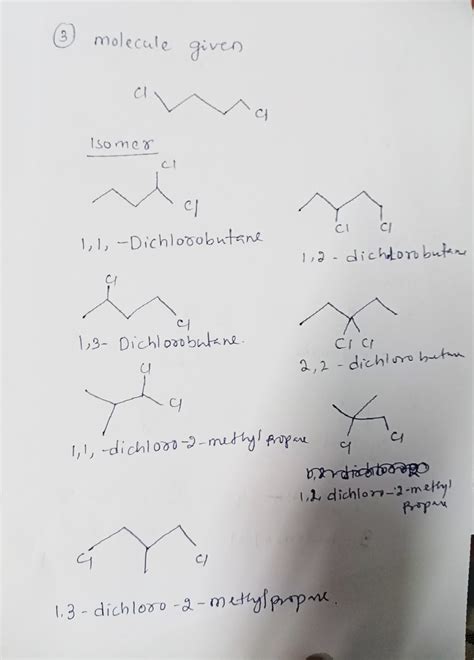 ③ molecule given
Cl
Cl
Isomer
Cl
Cl
1,1,-Dichlorobutane
Cl Cl
1,2-dichlorobutane
Cl
Cl
1,3- Dichlorobutane.
Cl Cl
2,2-dichlorobutane
Cl
Cl
1,1,-dichloro-2-methyl propane
Cl
Cl
1,2 dichloro-2-methyl
propane
Cl Cl
1,3-dichloro-2-methylpropane.